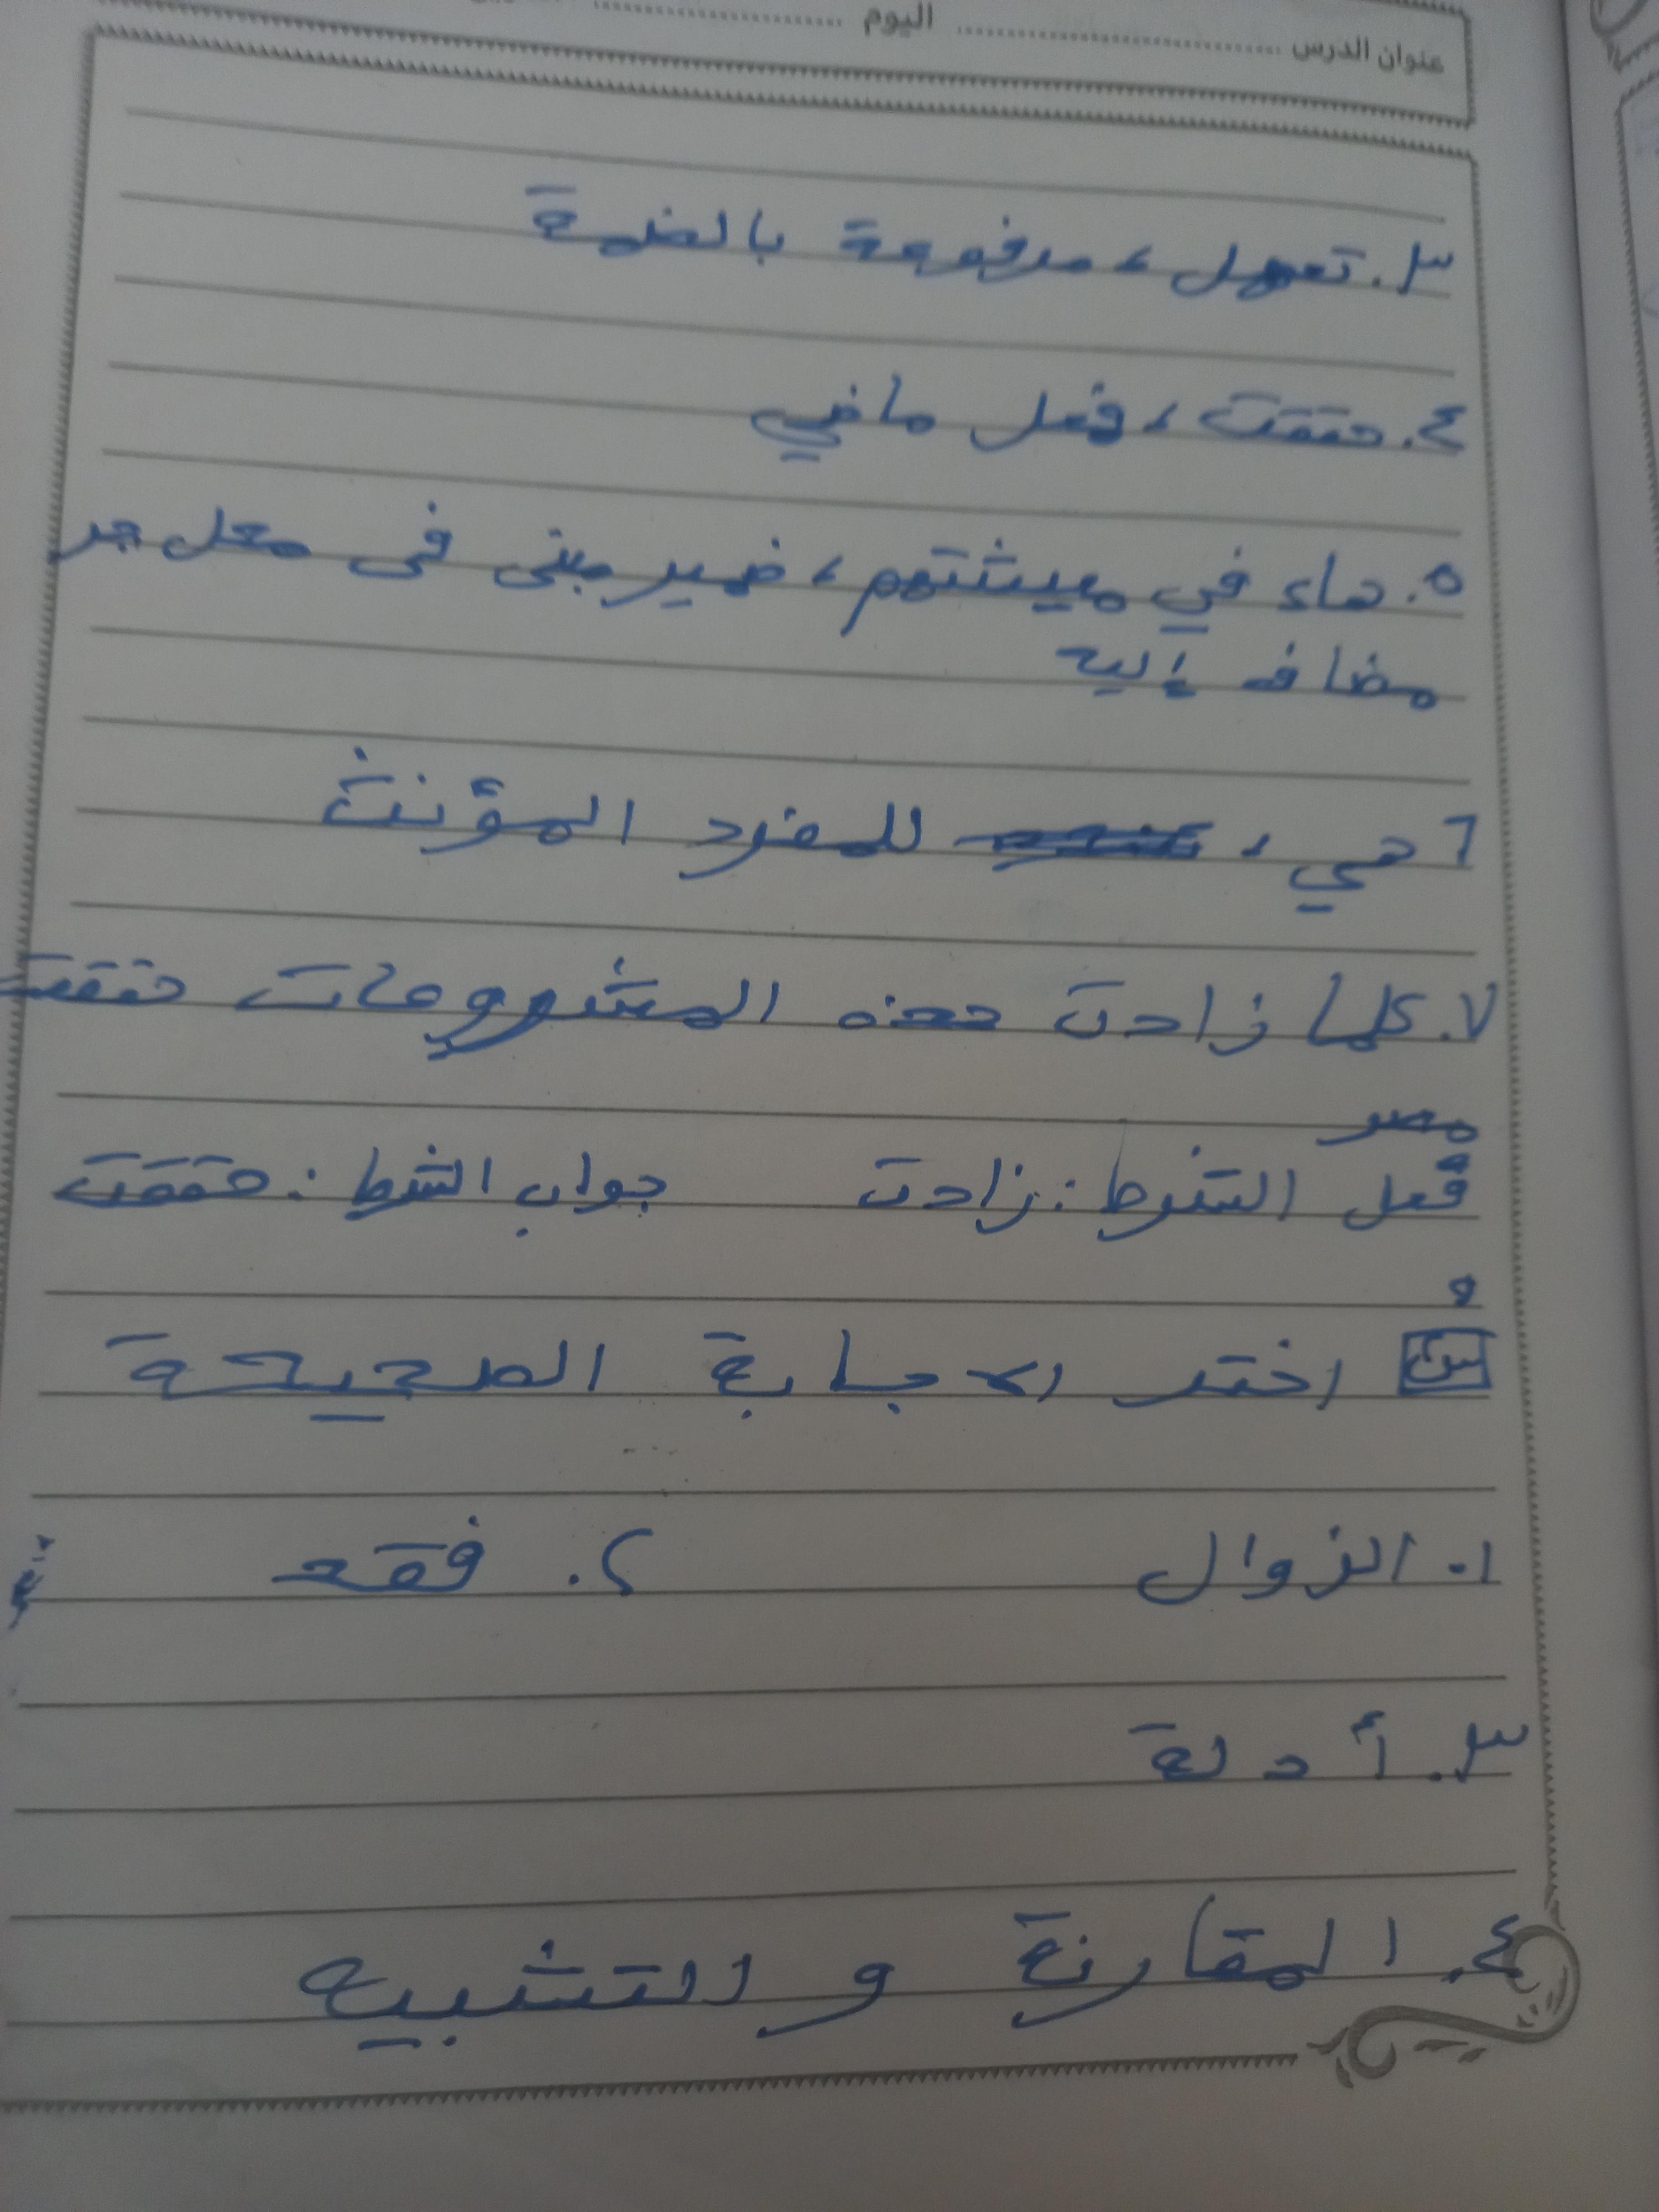 عنوان الدرس ........ اليوم ........
٣. تعمل، مرفوعة بالضمة
٤. حققت، فعل ماضي
٥. هاء في معيشتهم، ضمير مبنى فى محل جر
مضاف إليه
٦ هي، للمفرد المؤنث
٧. كلما زادت هذه المشروعات حققت
مصر
فعل الشرط: زادت جواب الشرط: حققت
س اختر الاجابة الصحيحة
١. الزوال ٢. فقد
٣. أدلة
٤. المقارنة و التشبيه